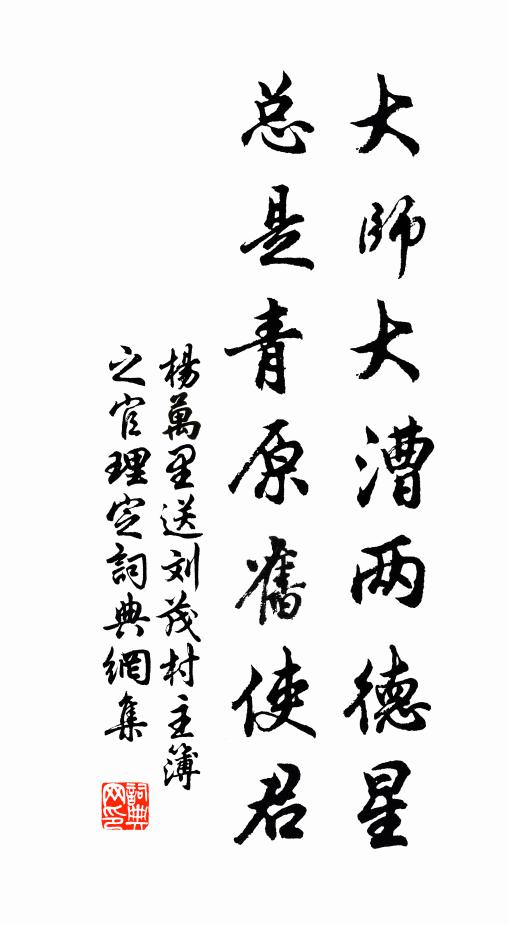 大師大漕两德星
总是青原舊使君
楊萬里送刘茂村主簿
之官理定詞典網集
詞典
网印